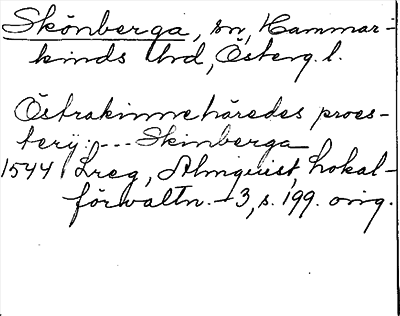 Skönberga, sn, Hammar-
kinds hd, Österg. l.
Östrakinnehäredes proes-
terij: --- Skinberga
1544 Lreg, Almquist, Lokal-
förvaltn. - 3, s. 199. orig.